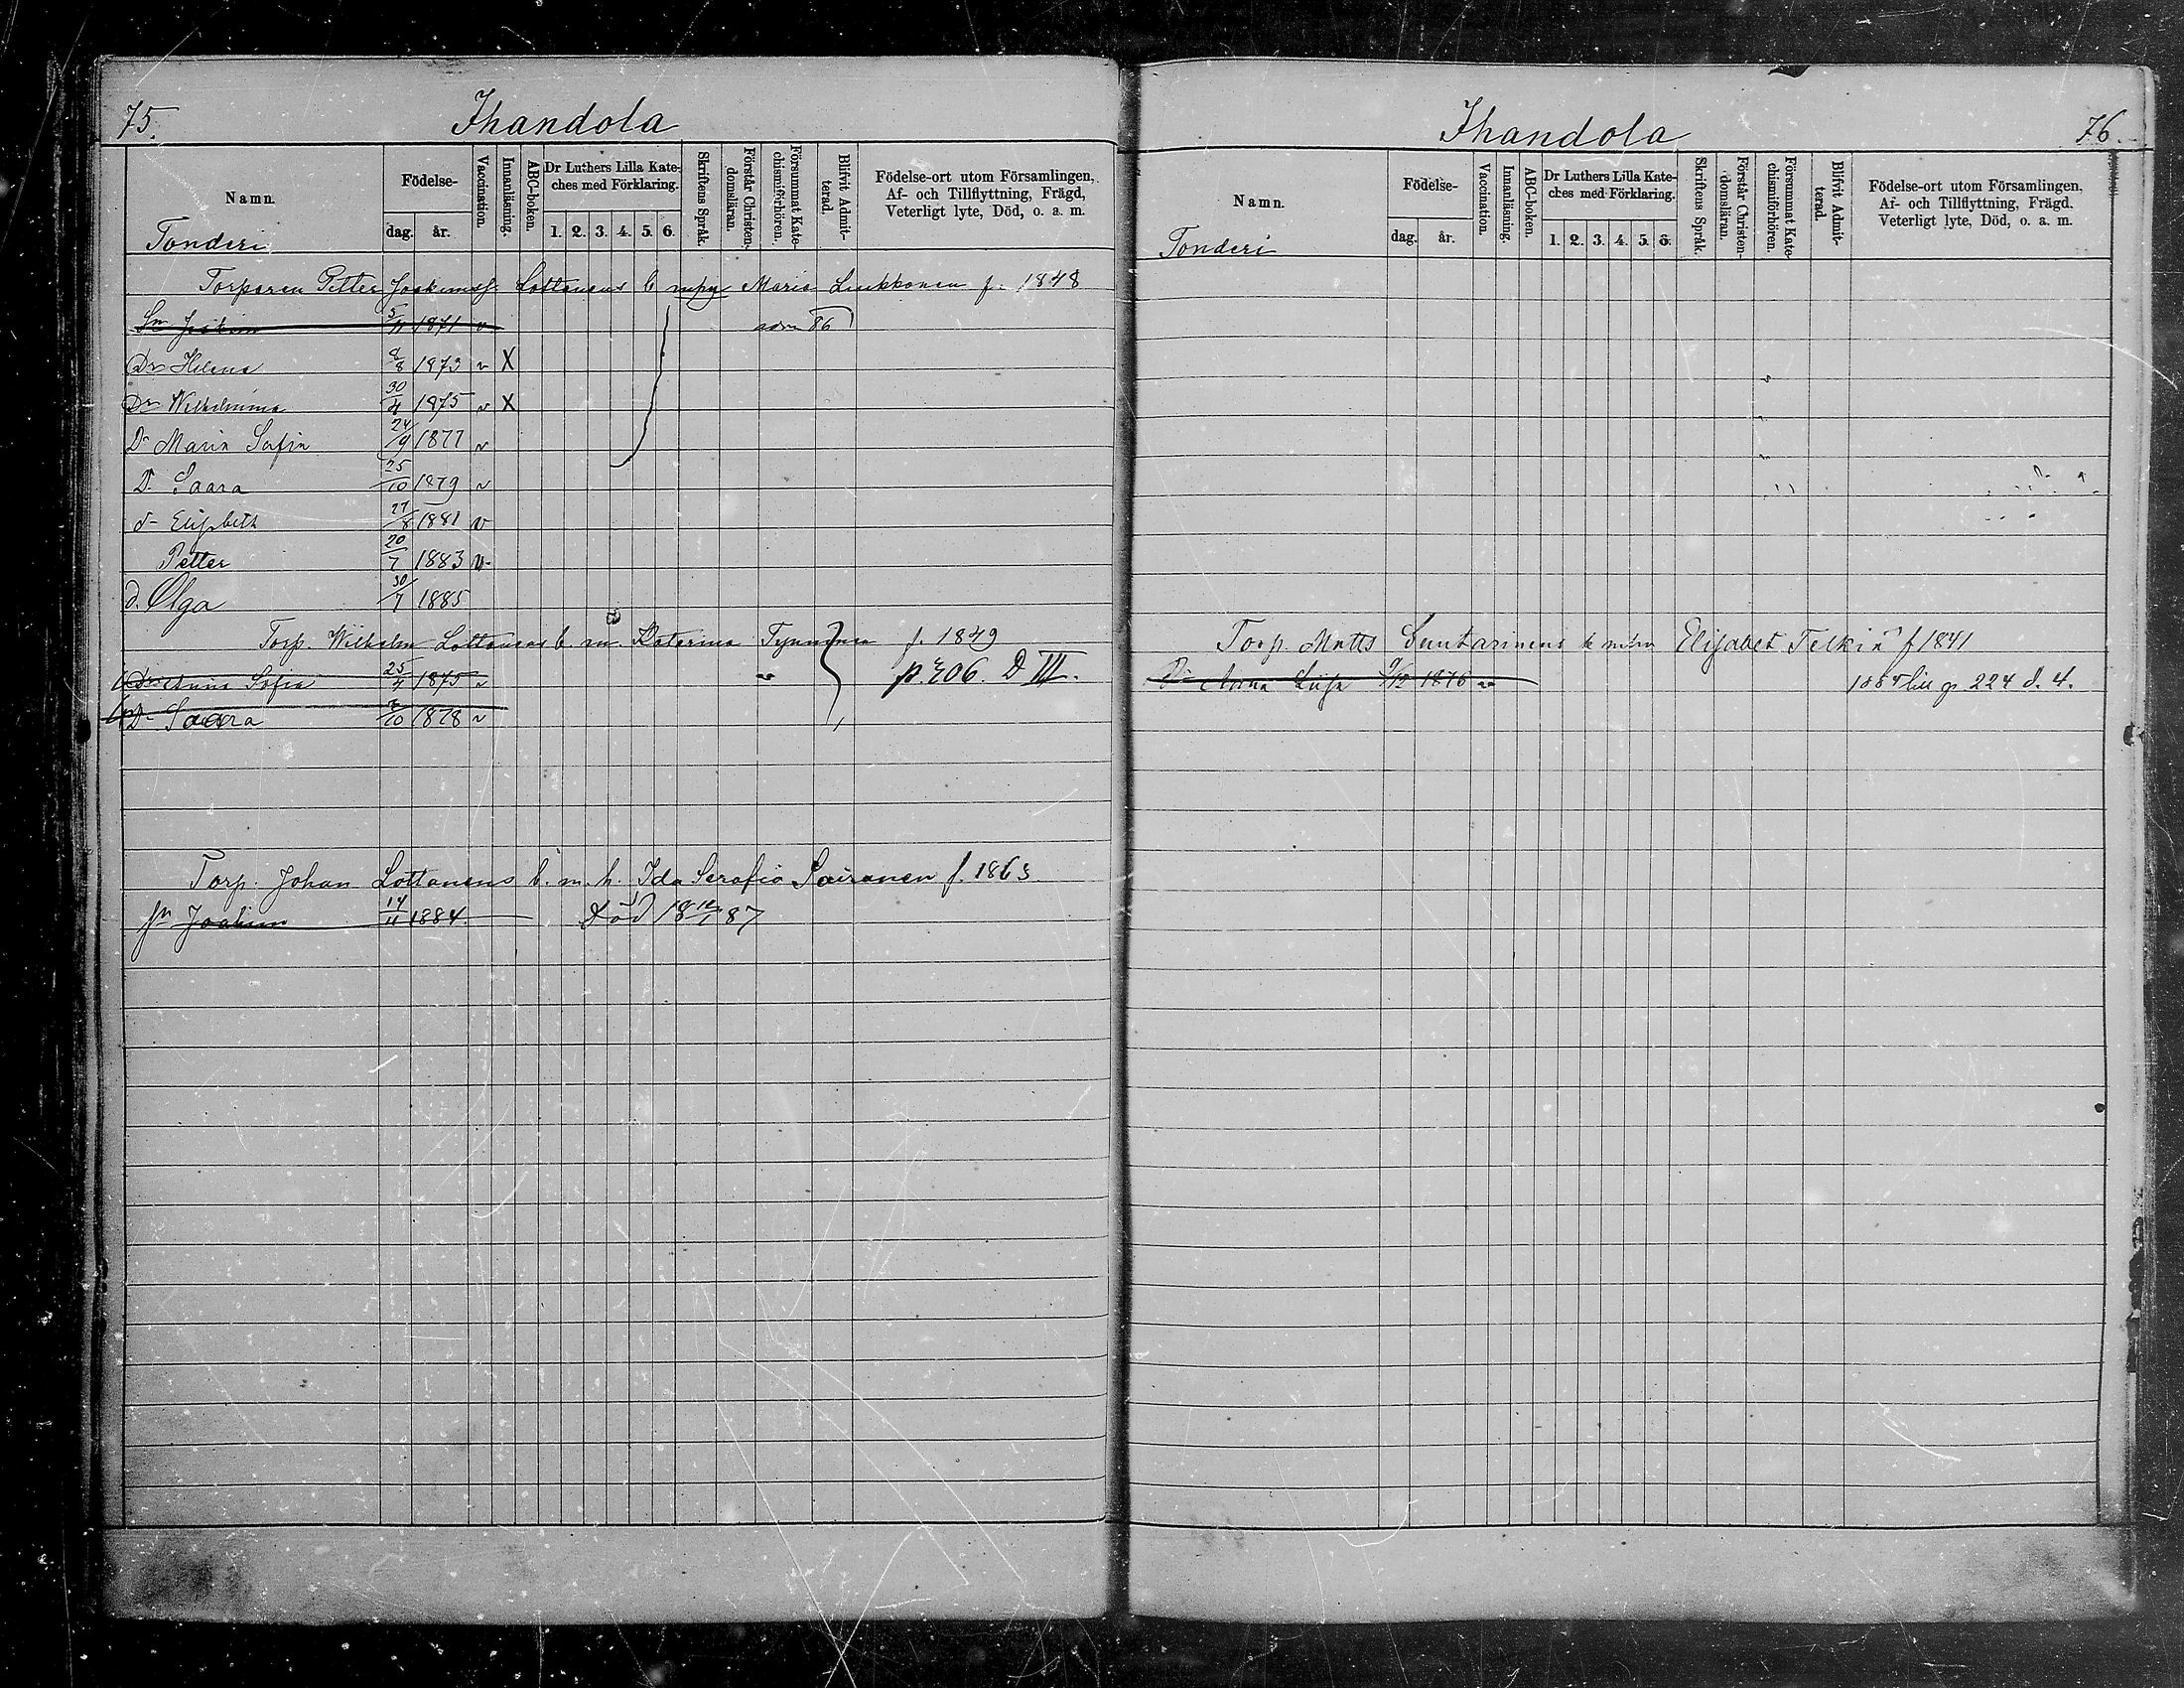 75.
Ihandola
Namn.
Födelse-
dag.
år.
Vaccination.
Innanläsning.
ABC-boken.
Dr Luthers Lilla Kate-
ches med Förklaring.
1. 2. 3. 4. 5. 6.
Skriftens Språk.
Förstår Christen-
domsläran.
Försummat Kate-
chismiförhören.
Blifvit Admit-
terad.
Födelse-ort utom Församlingen,
Af- och Tillflyttning, Frägd,
Veterligt lyte, Död, o. a. m.
Tonderi
Torparen Petter Joakimsf. Lottonens b Maria Liukkonen f. 1848
Sn Joakim 5/11 1871 v adm 86
Dr Helena 8/8 1873 v X
Dr Wilhelmina 30/4 1875 v X
Dr Maria Sofia 24/9 1877 v
D. Saara 25/10 1879 v
d- Elisabeth 27/8 1881 v
Petter 20/7 1883 v
d. Olga 30/7 1885
Torp. Wilhelm Lottonens b. m. Katarina Tynninen f. 1849
Dr Anna Sofia 25/4 1875 v p. 306. D III.
Dr Saara /10 1878 v
Torp. Johan Lottonens b. m. h. Ida Serafia Sairanen f. 1863
sn Joakim 14/11 1884. Död 18 12/1 87
Ihandola
76.
Namn.
Födelse-
dag.
år.
Vaccination.
Innanläsning.
ABC-boken.
Dr Luthers Lilla Kate-
ches med Förklaring.
1. 2. 3. 4. 5. 6.
Skriftens Språk.
Förstår Christen-
domsläran.
Försummat Kate-
chismiförhören.
Blifvit Admit-
terad.
Födelse-ort utom Församlingen,
Af- och Tillflyttning, Frägd.
Veterligt lyte, Död, o. a. m.
Tonderi
Torp. Matts Suntarinens b Elisabet Telkiä f 1841
Dr Anna Luisa 9/12 1876 v 1884 till p 224 d. 4.